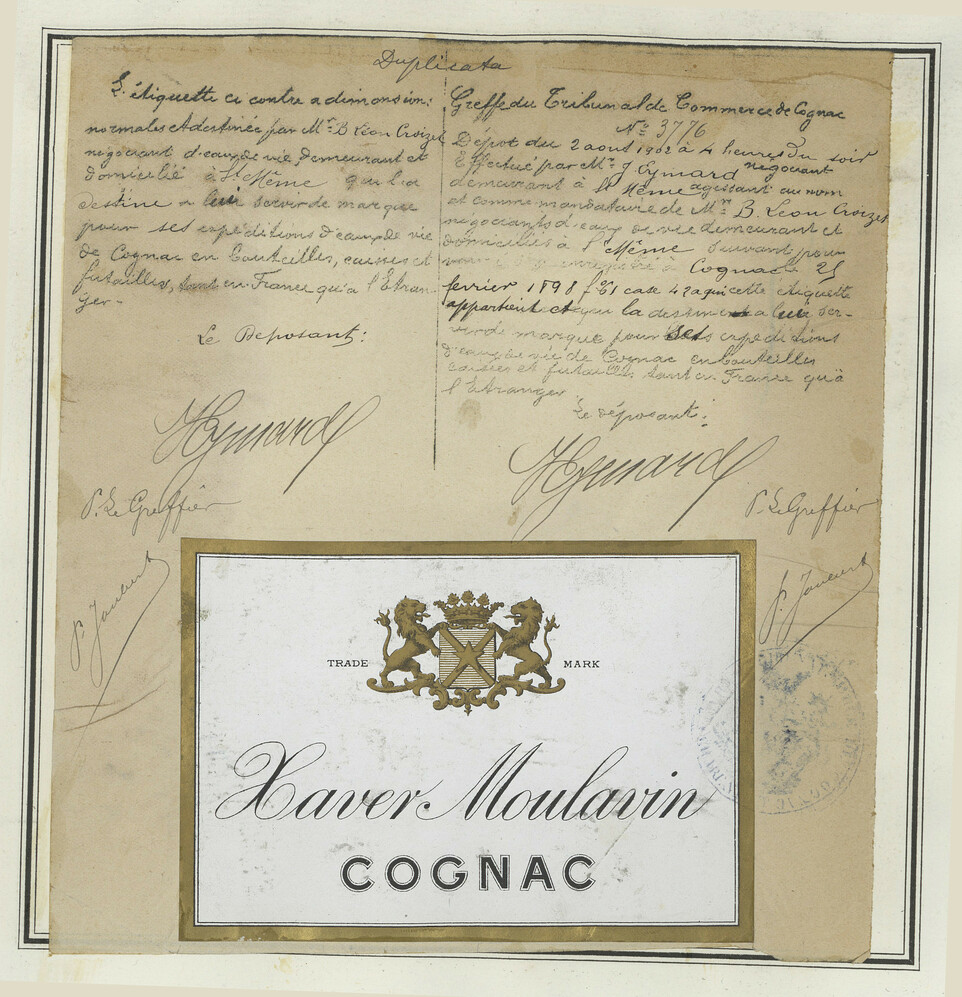 Duplicata
L'étiquette ci contre a dimensions
normales et destinée par Mr. B. Léon Croizet
négociant d'eaux de vie, demeurant et
domicilié à St Même qui l'a
destine a lui servir de marque
pour ses expéditions d'eaux de vie
de Cognac en bouteilles, caisses et
futailles, tant en France qu'a l'Etran-
ger-
Le Deposant:
HEymard
P. Le Greffier
Greffe du Tribunal de Commerce de Cognac
No 3776
Dépot du 2 aout 1902 à 4 heures du soir
Effectué par Mr. J Eymard négociant
demeurant à St Même agissant au nom
et comme mandataire de Mr. B. Léon Croizet
négociants d'eaux de vie demeurant et
domiciliés à St Même suivant pouvoir
enregistré à Cognac le 25
fevrier 1898 fo 51 case 42 a qui cette étiquette
appartient et qui la destine a lui ser-
vir de marque pour ses expéditions
d'eaux de vie de Cognac en bouteilles
caisses et futailles tant en France qu'à
l'Etranger
Le déposant:
HEymard
P. Le Greffier
TRADE MARK
Xaver Moulavin
COGNAC